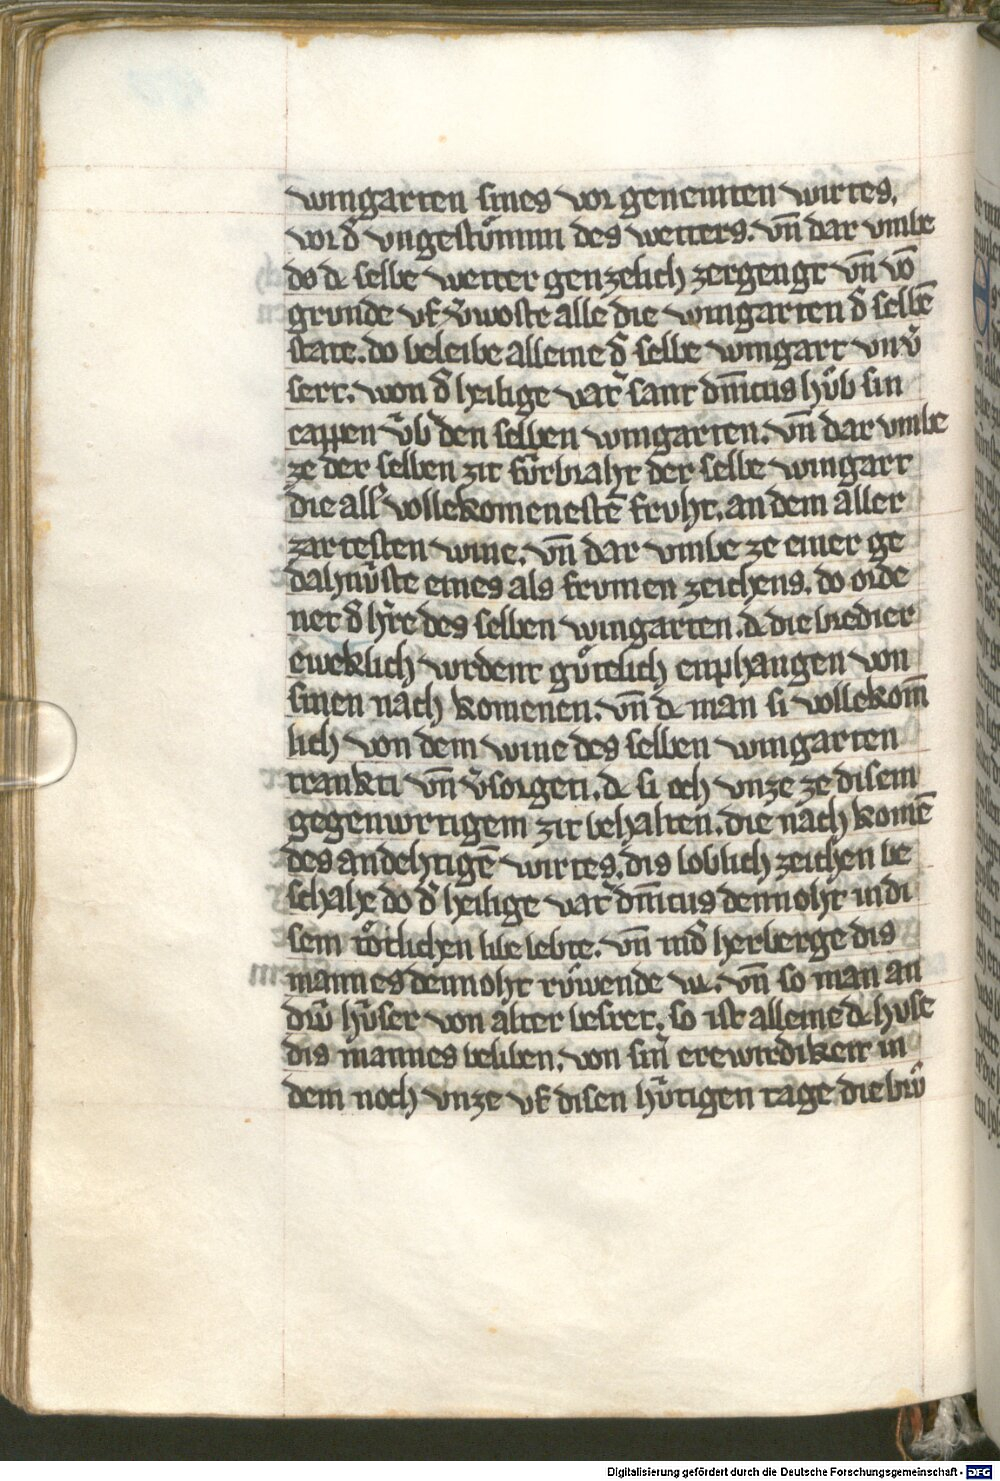 wingarten sines vor genemten wirtes,
vor d̄ vngestuͦmmi des wetters. vn̄ dar vmbe
do dc selbe wetter genzelich zergengt vn̄ vō
grunde vf v̓woste alle die wingarten d̓ selbē
state. do beleibe alleine d̓ selbe wingart vnv̓
sert. won d̓ heilige vat̓ sant dn̄icus hůb sin
cappen v̓b den selben wingarten. vn̄ dar vmbe
ze der selben zit fu̓rbraht der selbe wingart
die als̓ vollekomenestē fruht, an dem aller
zartesten wine. vn̄ dar vmbe ze einer ge
dahnu̓ste eines als frumen zeichens. do orde
net d̓ hr̓e des selben wingarten. dc die bredier
eweklich wrdent guͦtelich enphangen von
sinen nach komenen. vn̄ dc man si vollekom̄
lich von dem wine des selben wingarten
trankti vn̄ v̓sorgeti. dc si och vnze ze disem
gegenwrtigem zit behalten. die nach komē
des andehtigē wirtes. dis loblich zeichen be
schahe do d̓ heilige vat̓ dn̄icus dennoht in di
sem toͤtlichen libe lebte. vn̄ in d̓ herberge dis
mannes dennoht ruͦwende w. vn̄ so man an
du̓ hu̓ser von alter besret, so ist alleine dc huse
dis mannes beliben, von sin̓ erewirdikeit in
dem noch vnze vf disen hu̓tigen tage die bru̓